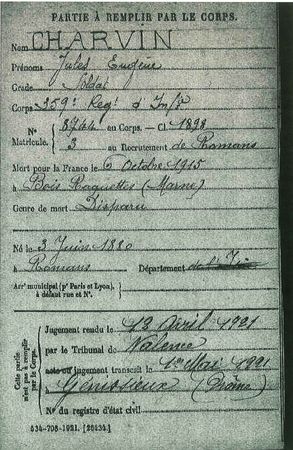 PARTIE À REMPLIR PAR LE CORPS.
Nom CHARVIN
Prénoms Jules Eugène
Grade Soldat
Corps 359e Regt d'Infie
N° Matricule. 8744 au Corps. — Cl. 1898
3 au Recrutement de Romans
Mort pour la France le 6 Octobre 1915
à Bois Raquettes (Marne)
Genre de mort Disparu
Né le 3 Juin 1880
à Romans Département de l'
Arrt municipal (pr Paris et Lyon),
à défaut rue et N°.
Cette partie n'est pas à remplir par le Corps.
Jugement rendu le 12 Avril 1921
par le Tribunal de Valence
jugement transcrit le 1er Mai 1921
à Génissieux (Drôme)
N° du registre d'état civil
534-708-1921. [26434.]